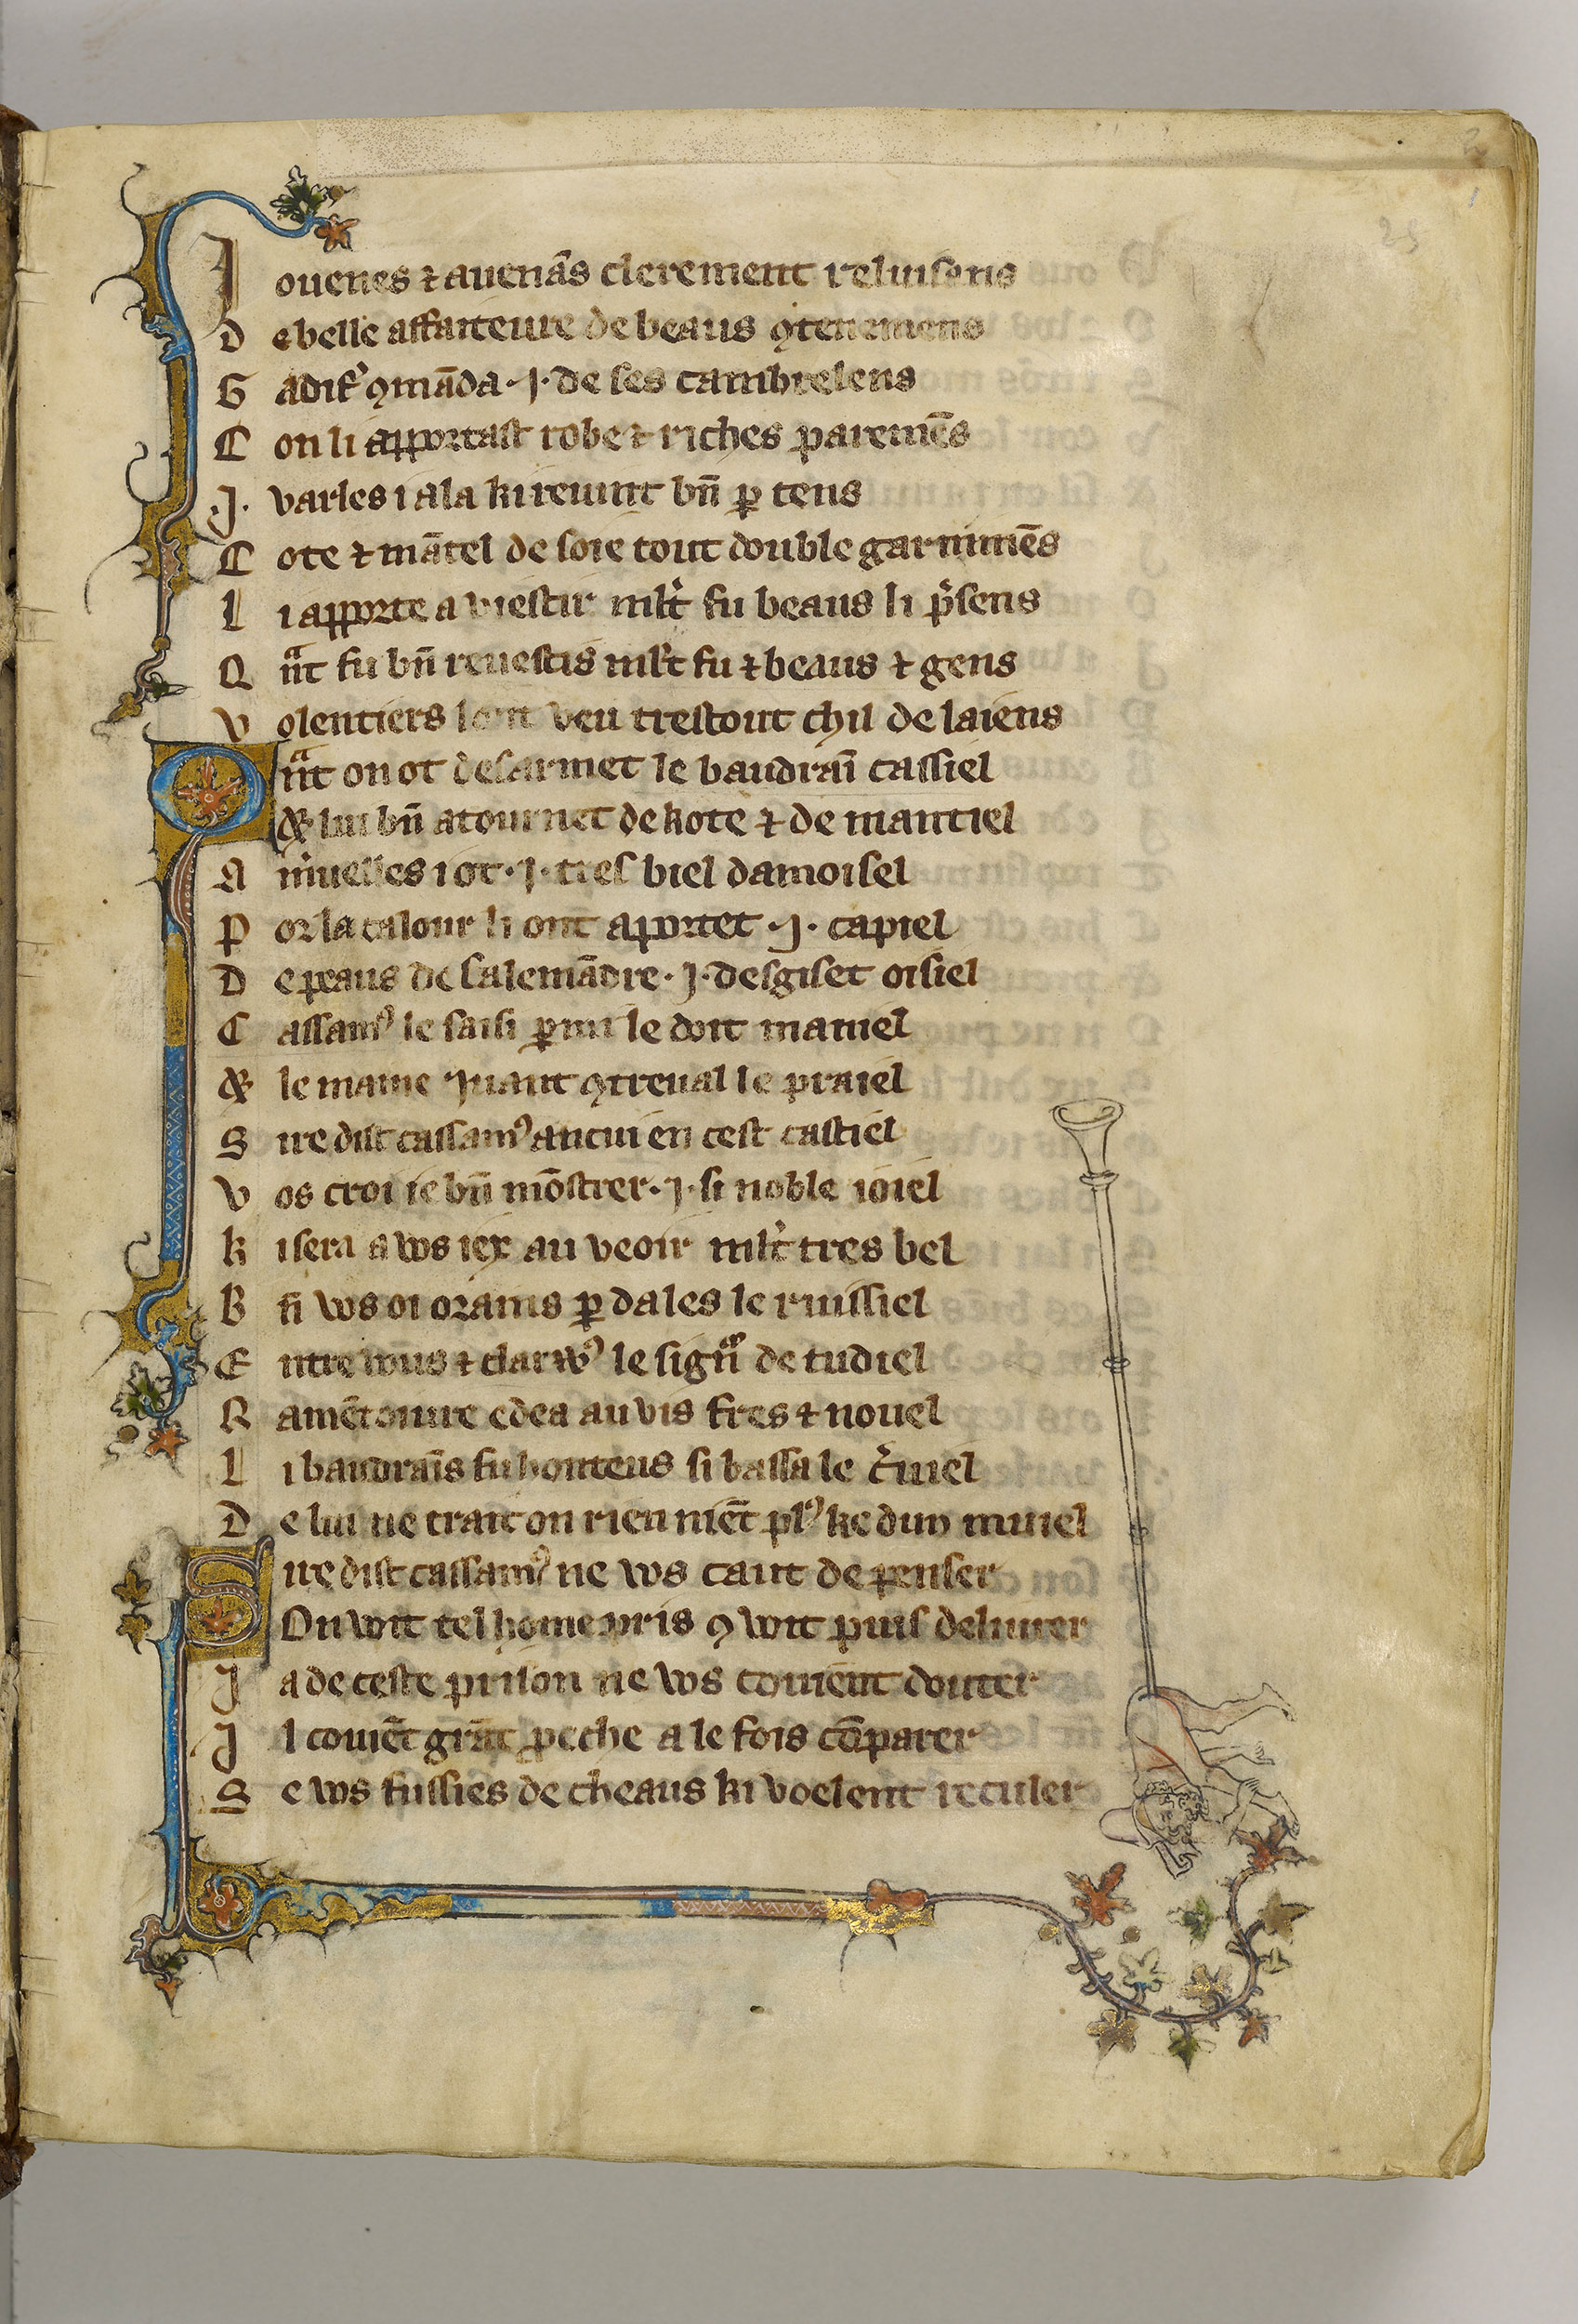 Jovenes ⁊ auenās clerement reluisens
De belle affaiteure de beaus ꝯtenemens
Gadifꝰ ꝯmāda .j. de ses cambrelens
Con li apportast robe ⁊ riches paremēs
.J. varles i ala ki reuint bn̄ ꝑ tens
Cote ⁊ mātel de soie tout double garnimēs
Li apporte a viestir ml̓t fu beaus li p̓sens
Qn̄t fu bn̄ reuestis ml̓t fu ⁊ beaus ⁊ gens
Volentiers lont veu trestout chil de laiens
Qn̄t on ot desarmet le baudraī cassiel
& lui bn̄ atournet de kote ⁊ de mantiel
A m̓uelles i ot .j. tres biel damoisel
Por la calour li ont aportet .j. capiel
De peaus de salemādre .j. desgiset oisiel
Cassamꝰ le saisi ꝑmi le doit maniel
& le maine juant ꝯtreual le praiel
Sire dist cassamꝰ ancui en cest castiel
Vos croi ie bn̄ mōstrer .j. si noble ioiel
Ki sera a vos iex au veoir ml̓t tres bel
Kn̄ vos oi orains ꝑ dales le ruissiel
Entre vous ⁊ clarvꝰ le sign̄ de tudiel
Ramētoiure edea au vis fres ⁊ nouel
Li baudraīs fu honteus si baissa le c̓uiel
De lui ne trait on rien niēt plꝰ ke dun muiel
Sire dist cassamꝰ ne vos caut de penser
On voit tel home pris ꝯ voit puis deliurer
Ja de ceste prison ne vos couient douter
Jl couiēt grāt peche a le fois cōparer
Se vos fussies de cheaus ki voelent reculer
25
2
1